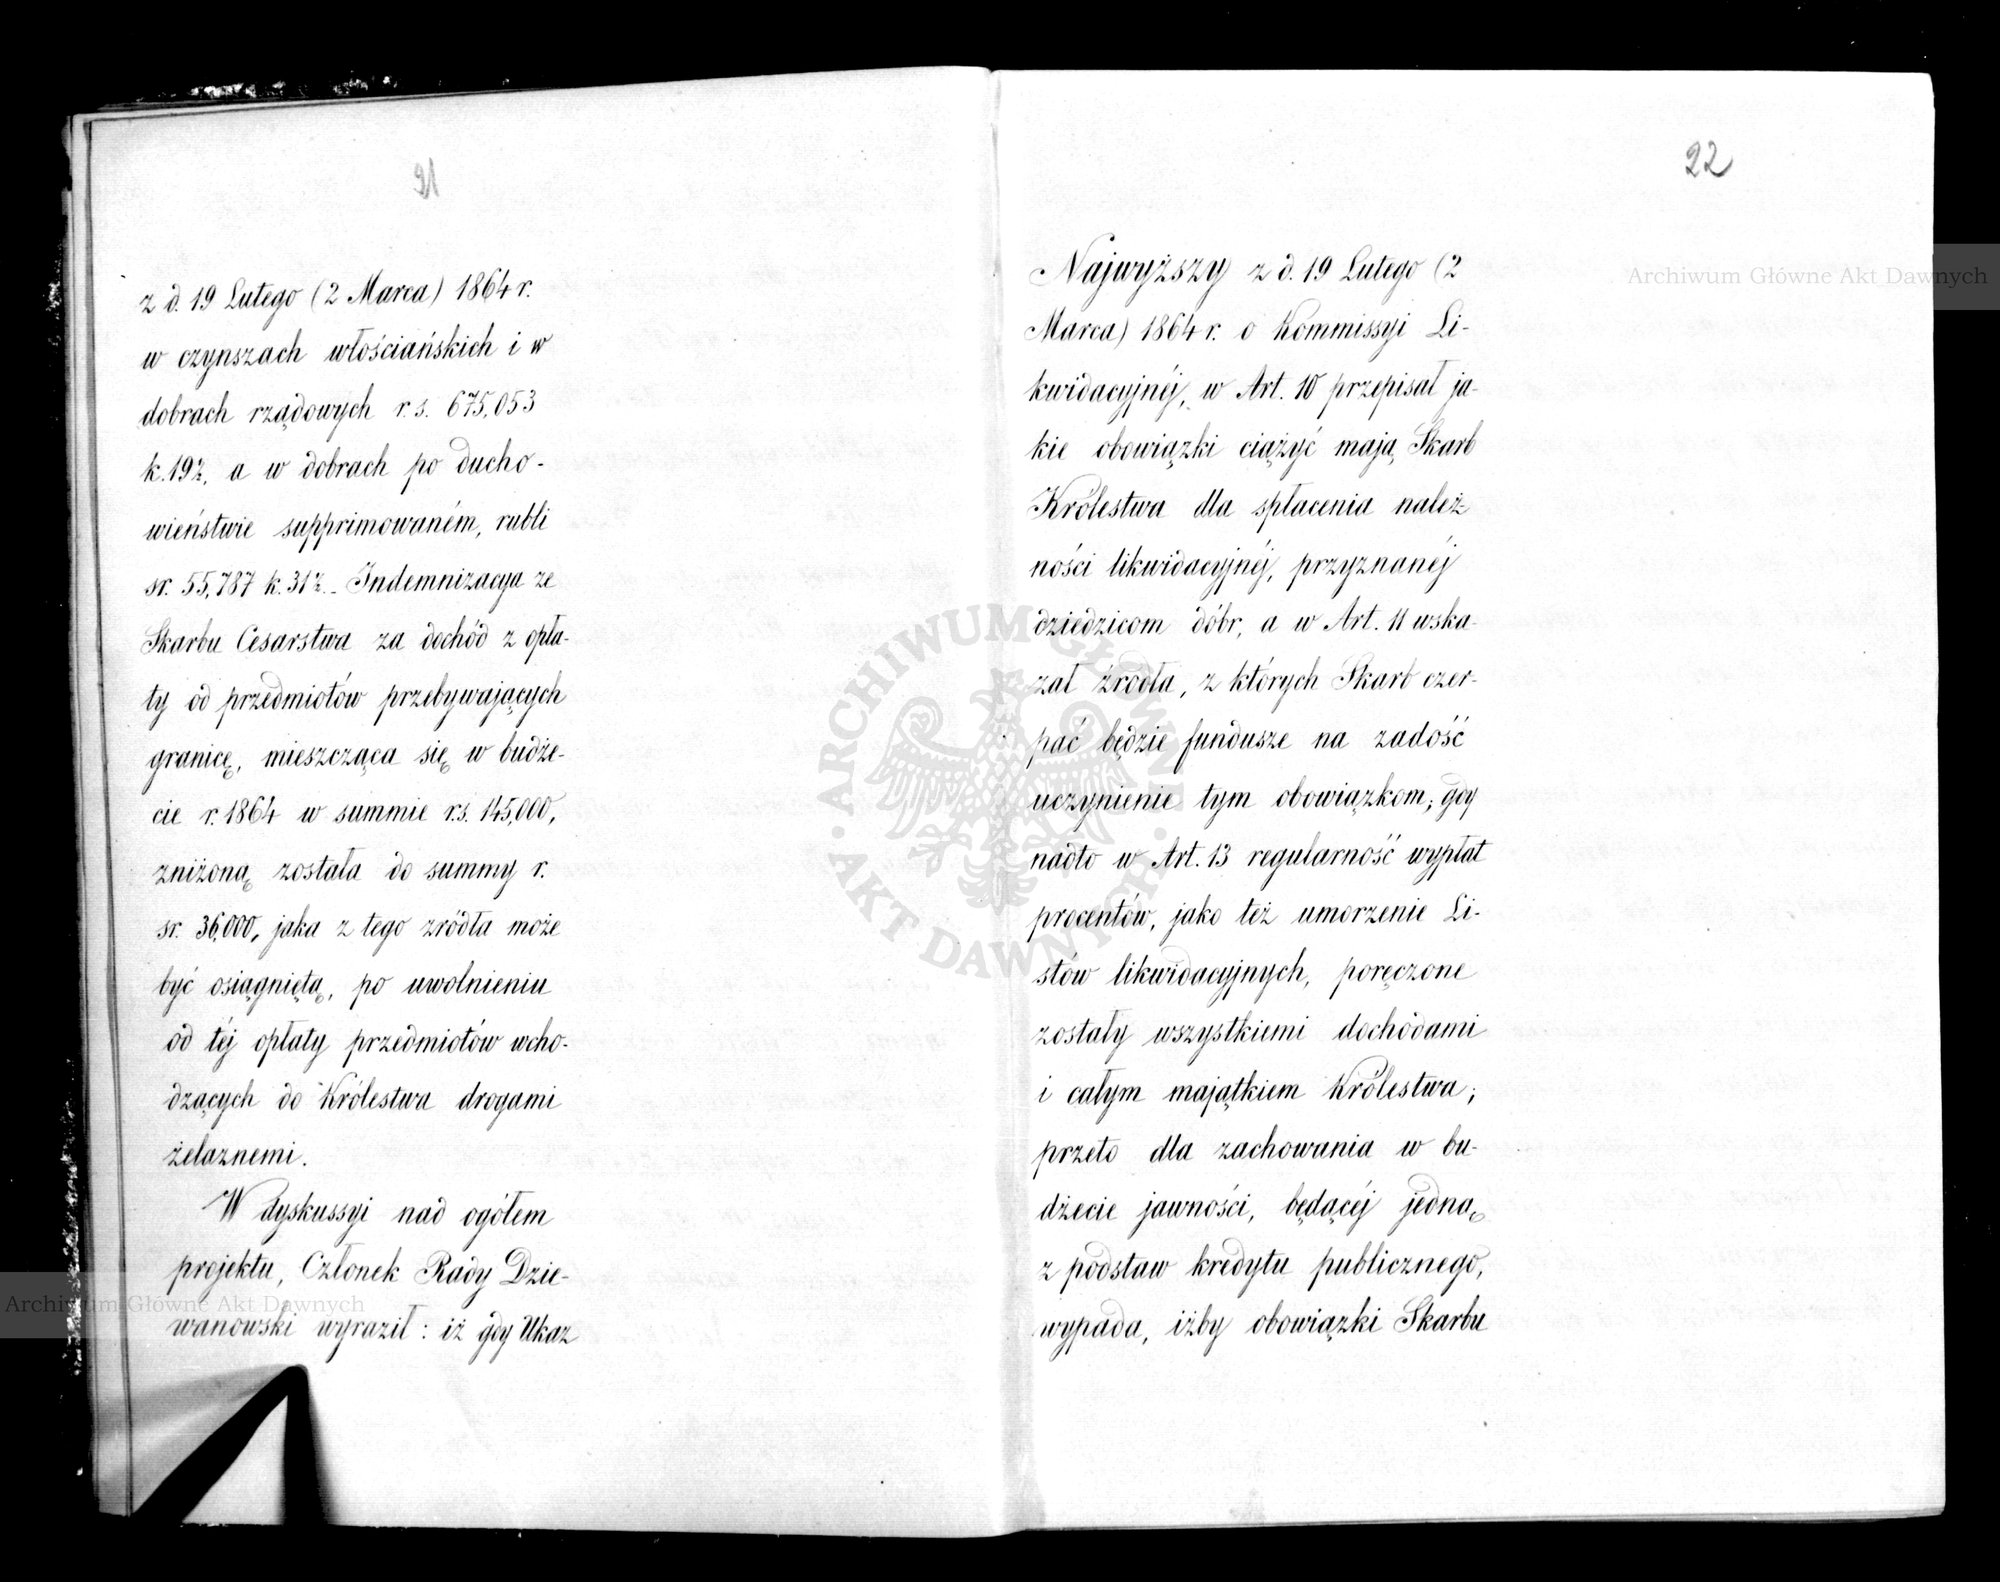 21
z d. 19 Lutego (2 Marca) 1864 r.
w czynszach włościańskich i w
dobrach rządowych r. s. 675,053
k. 19½, a w dobrach po ducho-
wieństwie supprimowaném, rubli
sr. 55,787 k. 31½. Indemnizacya ze
Skarbu Cesarstwa za dochód z opła-
ty od przedmiotów przebywających
granicę, mieszcząca się w budże-
cie r. 1864 w summie r.s. 145,000,
zniżoną została do summy r.
sr. 36,000, jaka z tego zródła może
być osiągniętą, po uwolnieniu
od téj opłaty przedmiotów wcho-
dzących do Królestwa drogami
żelaznemi.
W dyskussyi nad ogółem
projektu, Członek Rady Dzie-
wanowski wyraził: iż gdy Ukaz
22
Najwyższy z d. 19 Lutego (2
Marca) 1864 r. o Kommissyi Li-
kwidacyjnéj, w Art. 10 przepisał ja-
kie obowiązki ciążyć mają Skarb
Królestwa dla spłacenia należ-
ności likwidacyjnéj, przyznanéj
dziedzicom dóbr, a w Art. 11 wska-
zał źródła, z których Skarb czer-
pać będzie fundusze na zadość
uczynienie tym obowiązkom; gdy
nadto w Art. 13 regularność wypłat
procentów, jako też umorzenie Li-
stów likwidacyjnych, poręczone
zostały wszystkiemi dochodami
i całym majątkiem Królestwa;
przeto dla zachowania w bu-
dżecie jawności, będącéj jedną
z podstaw kredytu publicznego,
wypada, iżby obowiązki Skarbu
Archiwum Główne Akt Dawnych
Archiwum Główne Akt Dawnych
ARCHIWUM GŁÓWNE AKT DAWNYCH